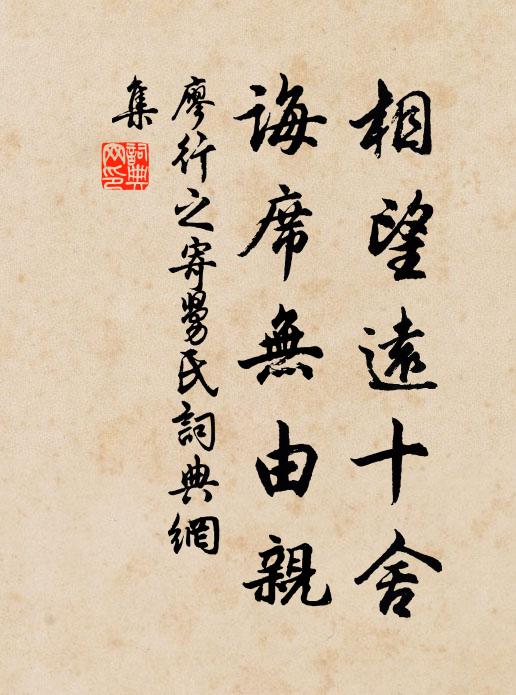 相望遠十舍
誨席無由親
廖行之寄舅民詞典網
集
詞典網印